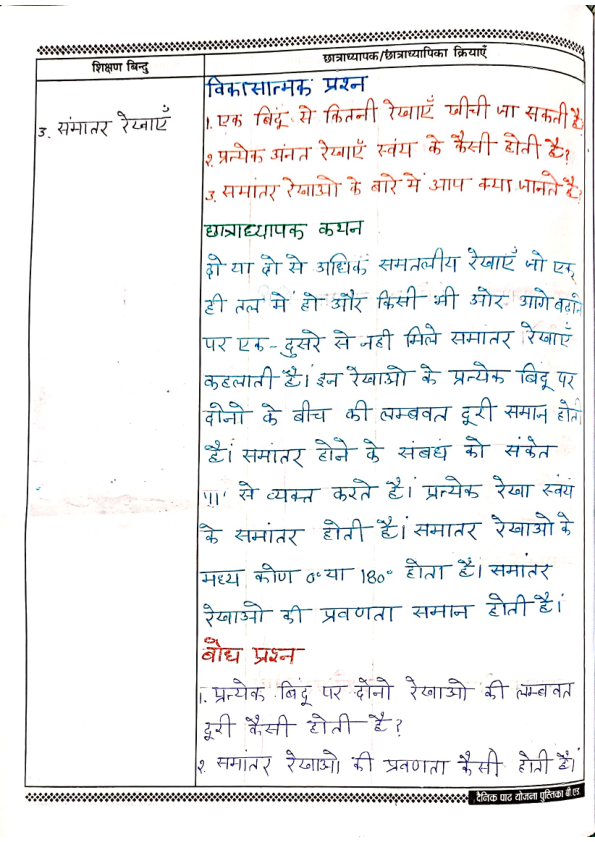 शिक्षण बिन्दु
छात्राध्यापक/छात्राध्यापिका क्रियाएँ
3. संमातर रेखाएँ
विकासात्मक प्रश्न
1. एक बिंदू से कितनी रेखाएँ खीची जा सकती है
2. प्रत्येक अंनत रेखाएँ स्वंय के कैसी होती है?
3. समांतर रेखाओ के बारे में आप क्या जानते है?
छात्राध्यापक कथन
दो या दो से अधिक समतलीय रेखाएँ जो एक
ही तल में हो और किसी भी ओर आगे बढाने
पर एक-दुसरे से नही मिले समांतर रेखाएँ
कहलाती है। इन रेखाओ के प्रत्येक बिंदू पर
दोनो के बीच की लम्बवत दूरी समान होती
है। समांतर होने के संबधं को संकेत
'॥' से व्यक्त करते है। प्रत्येक रेखा स्वंय
के समांतर होती है। समातर रेखाओ के
मध्य कोण 0° या 180° होता है। समांतर
रेखाओ की प्रवणता समान होती है।
बोध प्रश्न
1. प्रत्येक बिंदू पर दोनो रेखाओ की लम्बवत
दूरी कैसी होती है?
2. समांतर रेखाओ की प्रवणता कैसी होती है।
दैनिक पाठ योजना पुस्तिका बी.एड.